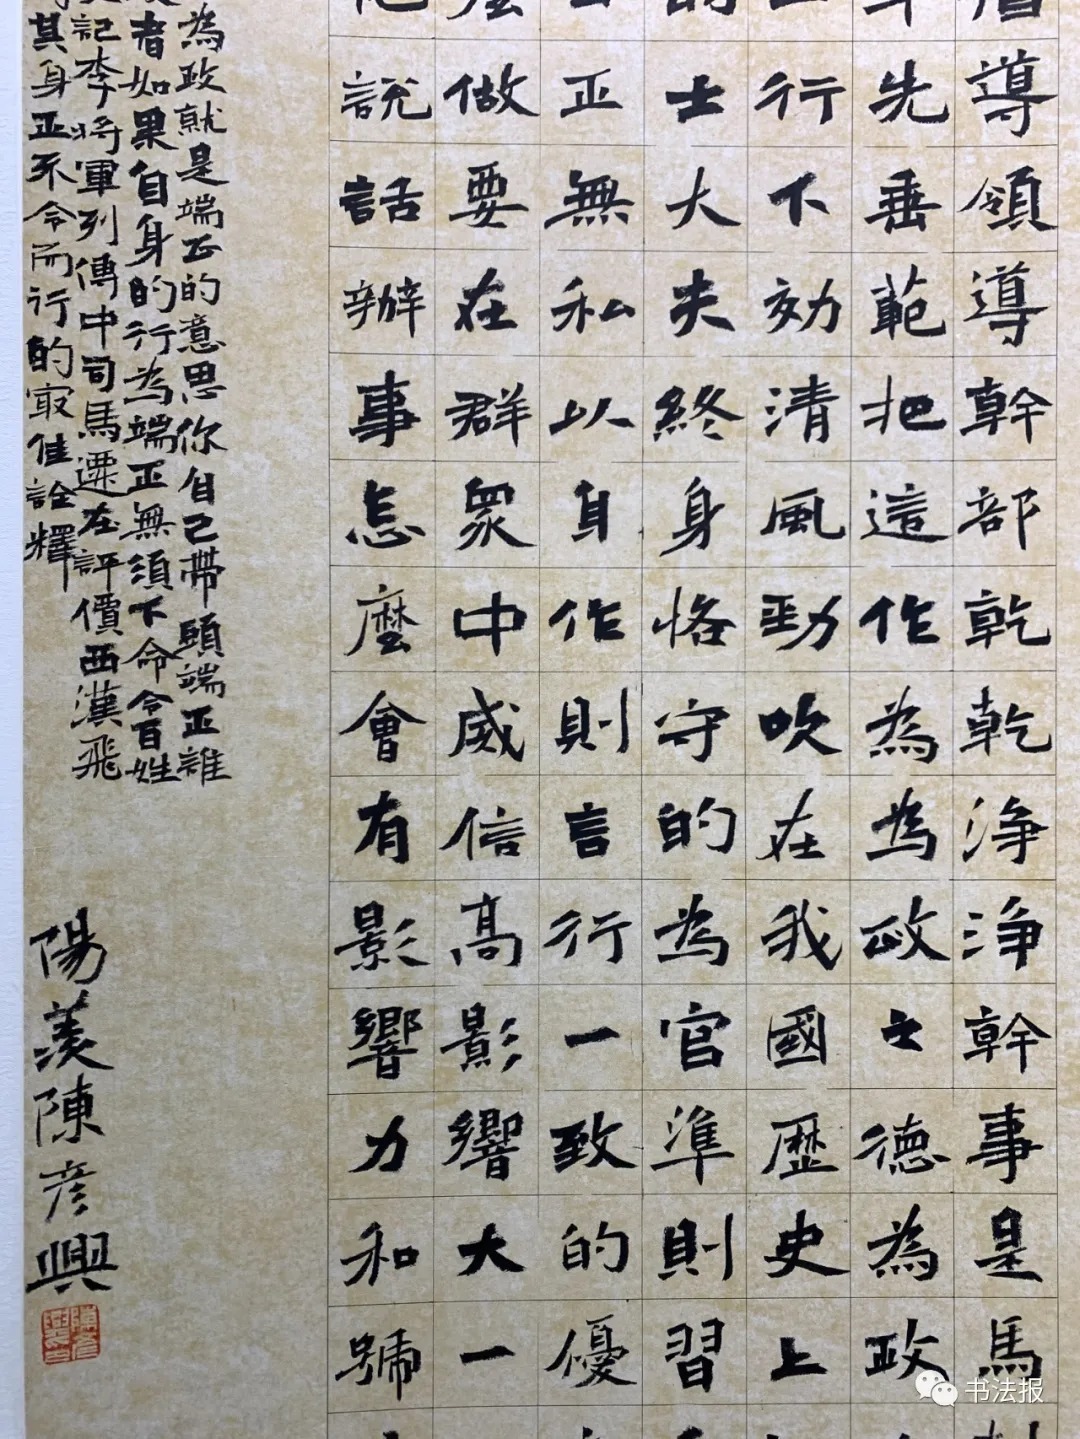 導領導幹部乾乾净净幹事是馬
先垂範把這作為為政之德為政
行下効清風勁吹在我國歷史上
士大夫終身恪守的為官準則習
正無私以身作則言行一致的優
做要在群眾中威信高影響大一
說話辦事怎麼會有影響力和號
為政就是端正的意思你自己帶頭端正誰
者如果自身的行為端正無須下命令百姓
記李將軍列傳中司馬遷在評價西漢飛
其身正不令而行的最佳詮釋
陽羨陳彥興
书法报